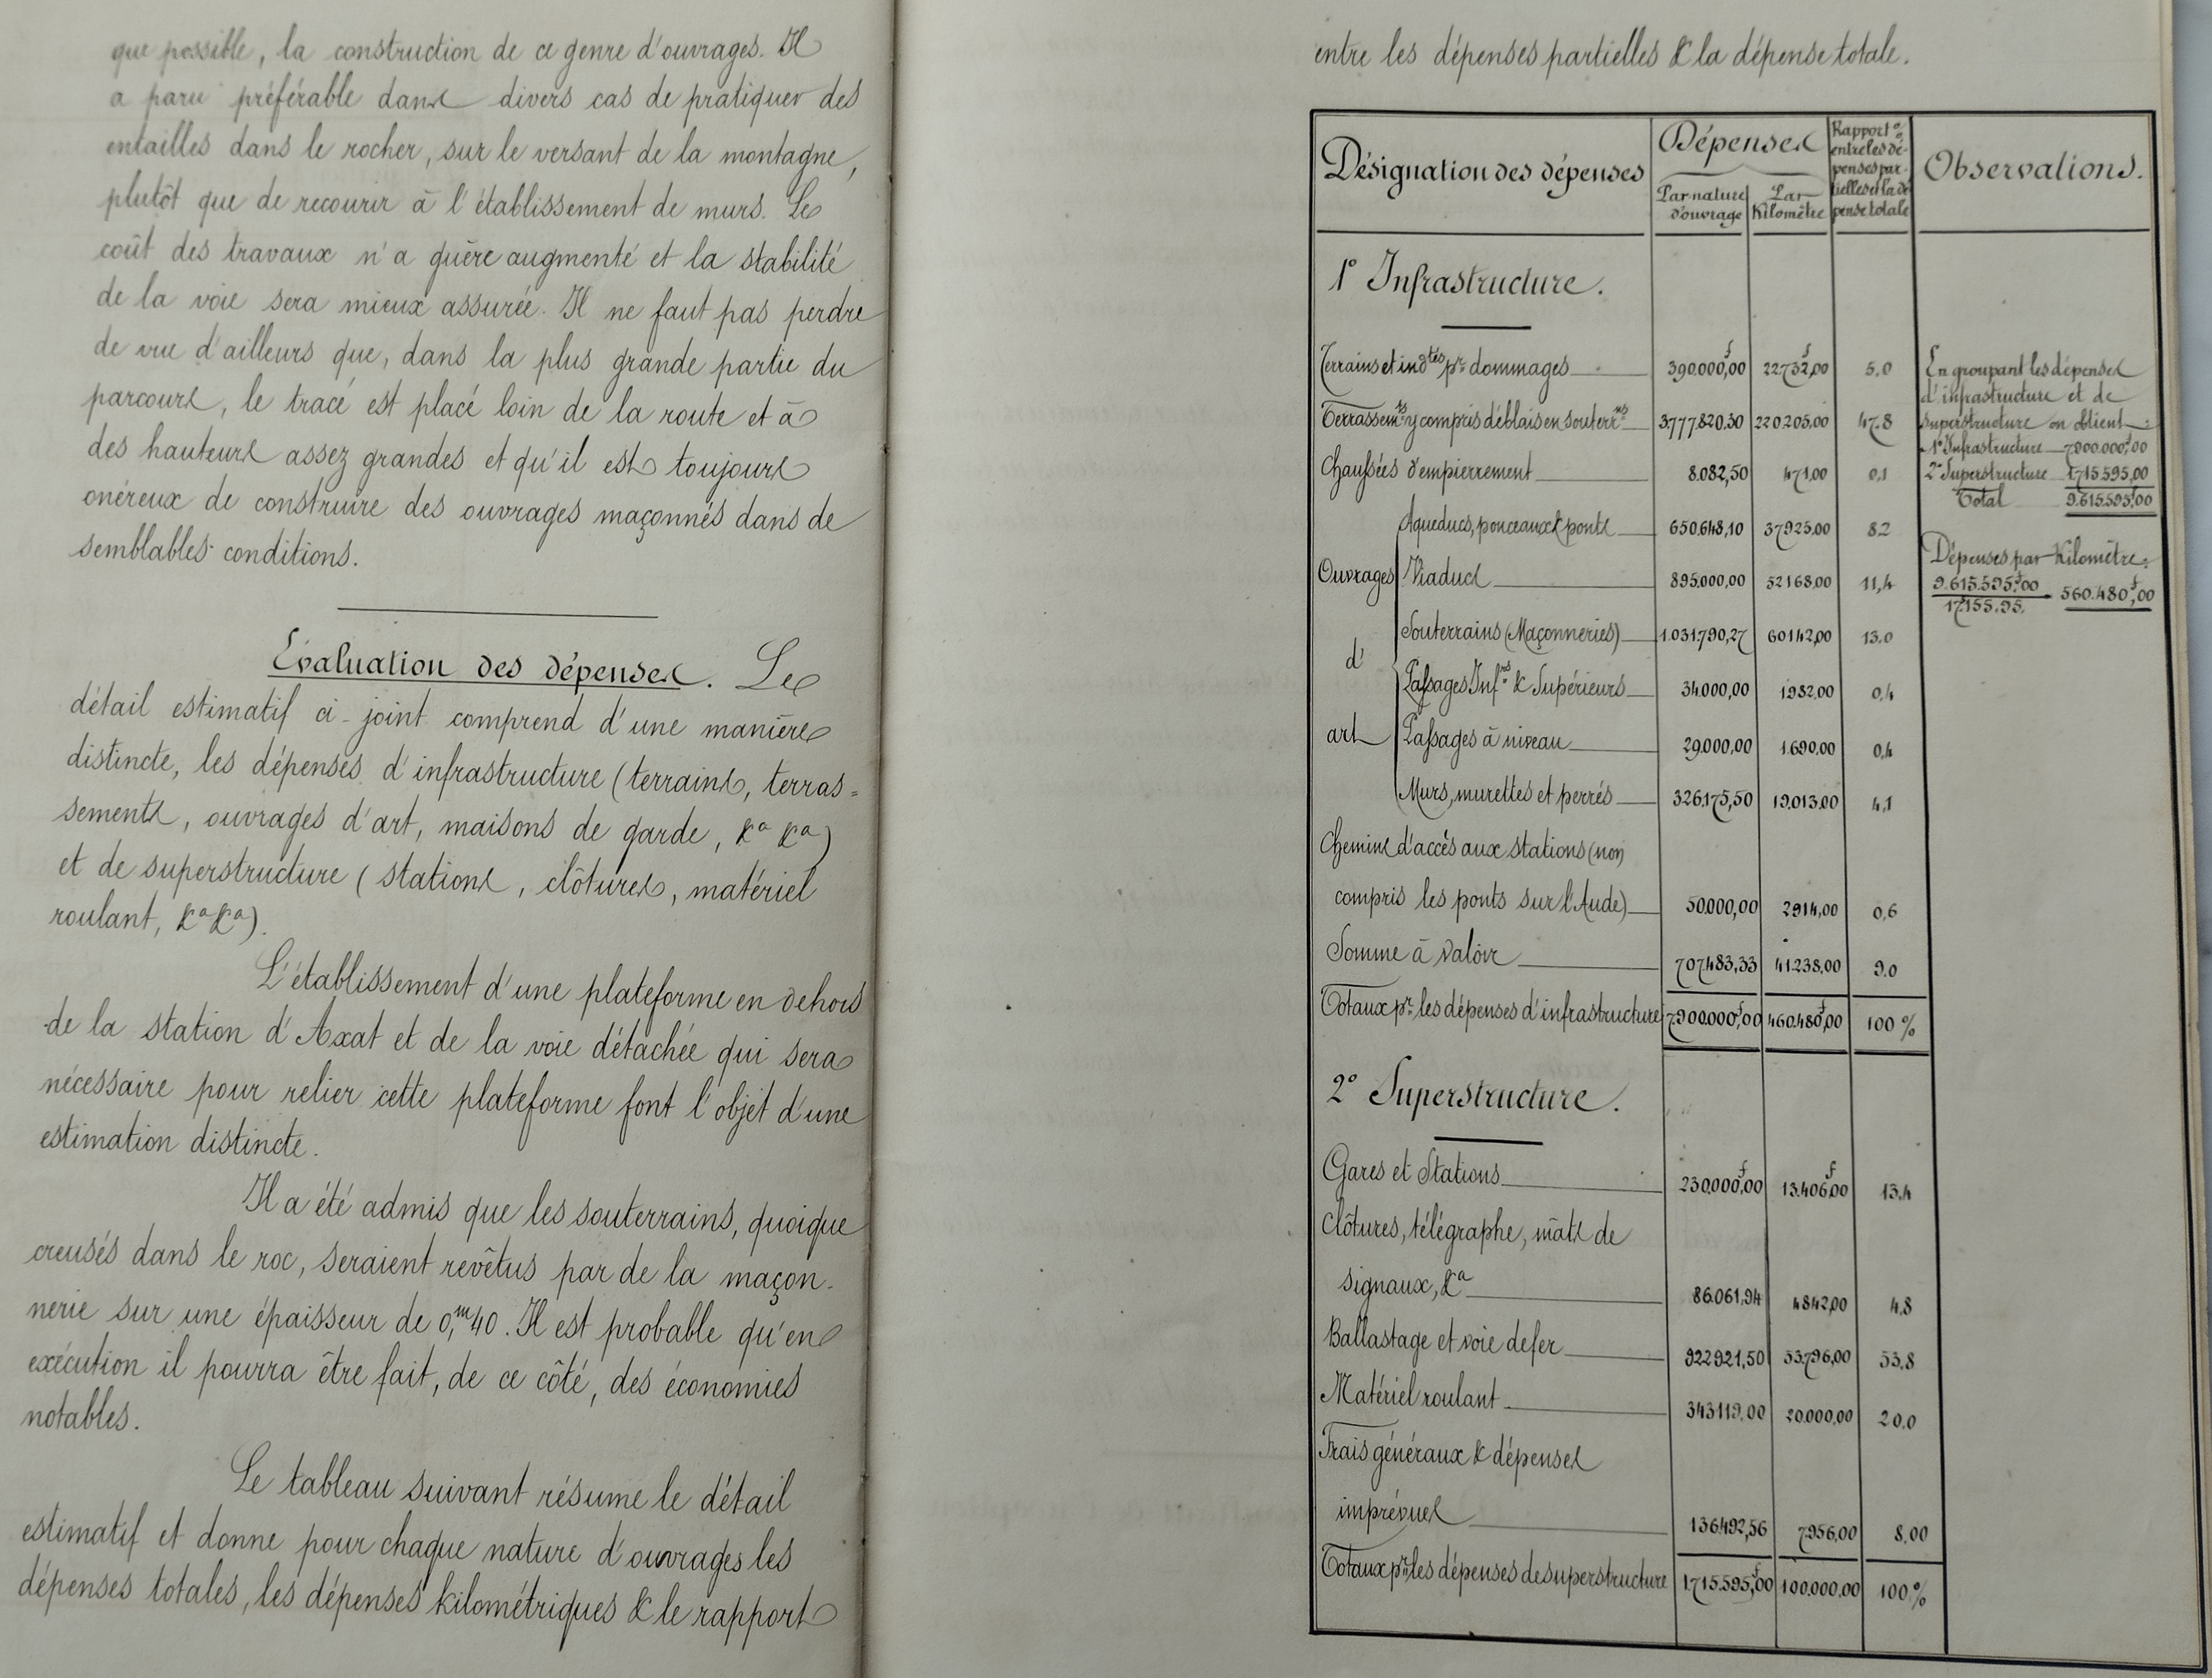 que possible, la construction de ce genre d'ouvrages. Il
a paru préférable dans divers cas de pratiquer des
entailles dans le rocher, sur le versant de la montagne,
plutôt que de recourir à l'établissement de murs. Le
coût des travaux n'a guère augmenté et la stabilité
de la voie sera mieux assurée. Il ne faut pas perdre
de vue d'ailleurs que, dans la plus grande partie du
parcours, le tracé est placé loin de la route et à
des hauteurs assez grandes et qu'il est toujours
onéreux de construire des ouvrages maçonnés dans de
semblables conditions.
Évaluation des dépenses. Le
détail estimatif ci-joint comprend d'une manière
distincte, les dépenses d'infrastructure (terrains, terras=
sements, ouvrages d'art, maisons de garde, &a &a)
et de superstructure (stations, clôtures, matériel
roulant, &a &a).
L'établissement d'une plateforme en dehors
de la station d'Axat et de la voie détachée qui sera
nécessaire pour relier cette plateforme font l'objet d'une
estimation distincte.
Il a été admis que les souterrains, quoique
creusés dans le roc, seraient revêtus par de la maçon-
nerie sur une épaisseur de 0,m40. Il est probable qu'en
exécution il pourra être fait, de ce côté, des économies
notables.
Le tableau suivant résume le détail
estimatif et donne pour chaque nature d'ouvrages les
dépenses totales, les dépenses kilométriques & le rapport
entre les dépenses partielles & la dépense totale.
Désignation des dépenses
Dépenses
Par nature d'ouvrage
Par Kilomètre
Rapport % entre les dé-
penses par-
tielles et la dé
pense totale
Observations.
1° Infrastructure.
Terrains et indtés pr dommages 390.000f,00 22732f,00 5,0
Terrassemts y compris déblais en souterrns 3.777.820,30 220.205,00 47.8
Chaussées d'empierrement 8.082,50 471,00 0,1
Ouvrages d'art
Aqueducs, ponceaux & ponts 650.648,10 37925,00 8.2
Viaducs 895.000,00 52168,00 11,4
Souterrains (Maçonneries) 1.031.790,27 60142,00 13.0
Passages Infrs & Supérieurs 34.000,00 1982,00 0,4
Passages à niveau 29.000,00 1.690,00 0,4
Murs, murettes et perrés 326.175,50 19.013,00 4,1
Chemins d'accès aux stations (non
compris les ponts sur l'Aude) 50.000,00 2914,00 0,6
Somme à Valoir 707.483,33 41.238,00 9.0
Totaux pr les dépenses d'infrastructure 7.900.000f,00 460.480f,00 100 %
2° Superstructure.
Gares et Stations 230.000f,00 13.406f,00 13,4
Clôtures, télégraphe, mâts de
signaux, &a 86.061,94 4842,00 4,8
Ballastage et voie de fer 922.921,50 53.796,00 53,8
Matériel roulant 343119,00 20.000,00 20,0
Frais généraux & dépenses
imprévues 136.492,56 7.956,00 8,00
Totaux pr les dépenses de superstructure 1.715.595f,00 100.000.00 100 %
En groupant les dépenses
d'infrastructure et de
superstructure on obtient:
1° Infrastructure 7.900.000f,00
2° Superstructure 1.715.595,00
Total 9.615.595f,00
Dépenses par Kilomètre:
9.615.595f,00
17.155.95. = 560.480f,00